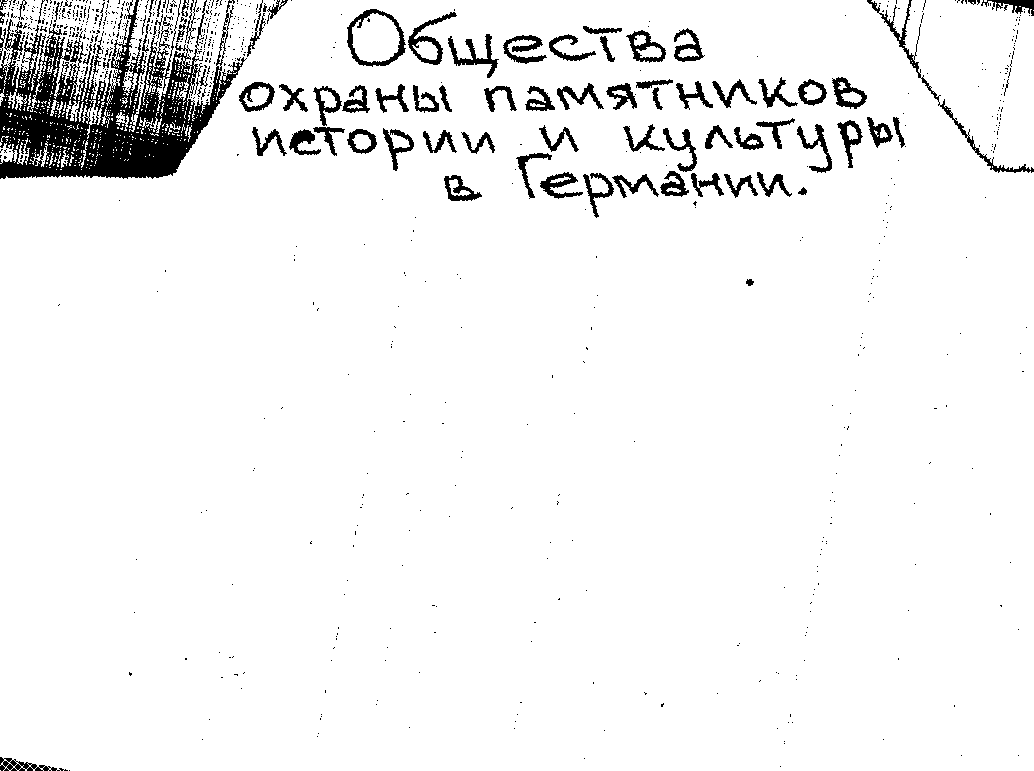 Общества
охраны памятников
истории и культуры
в Германии.